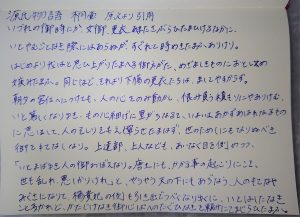 源氏物語 桐壺 原文より引用
いづれの御時にか 女御、更衣 あまたさぶらひたまひけるなかに、
いとやむごとなき際にはあらぬが、すぐれて時めきたまふありけり。
はじめより我はと思ひ上がりたまへる御方がた、めざましきものにおとしめ
嫉みたまふ。同じほど、それより下臈の更衣たちは、ましてやすからず。
朝夕の宮仕へにつけても、人の心をのみ動かし、恨みを負ふ積もりにやありけむ、
いと篤しくなりゆき、もの心細げに里がちなるを、いよいよあかずあはれなるもの
に思ほして、人のそしりをもえ憚らせたまはず、世のためしにもなりぬべき
御もてなしなり。上達部、上人なども、あいなく目を側めつつ、
「いとまばゆき人の御おぼえなり。唐土にも、かかる事の起こりにこそ、
世も乱れ、悪しかりけれ」と、やうやう天の下にもあぢきなう、人のもてなや
みぐさになりて、楊貴妃の例も引き出でつべくなりゆくに、いとはしたなき
こと多かれど、かたじけなき御心ばへのたぐひなきを頼みにてまじらひたまふ。